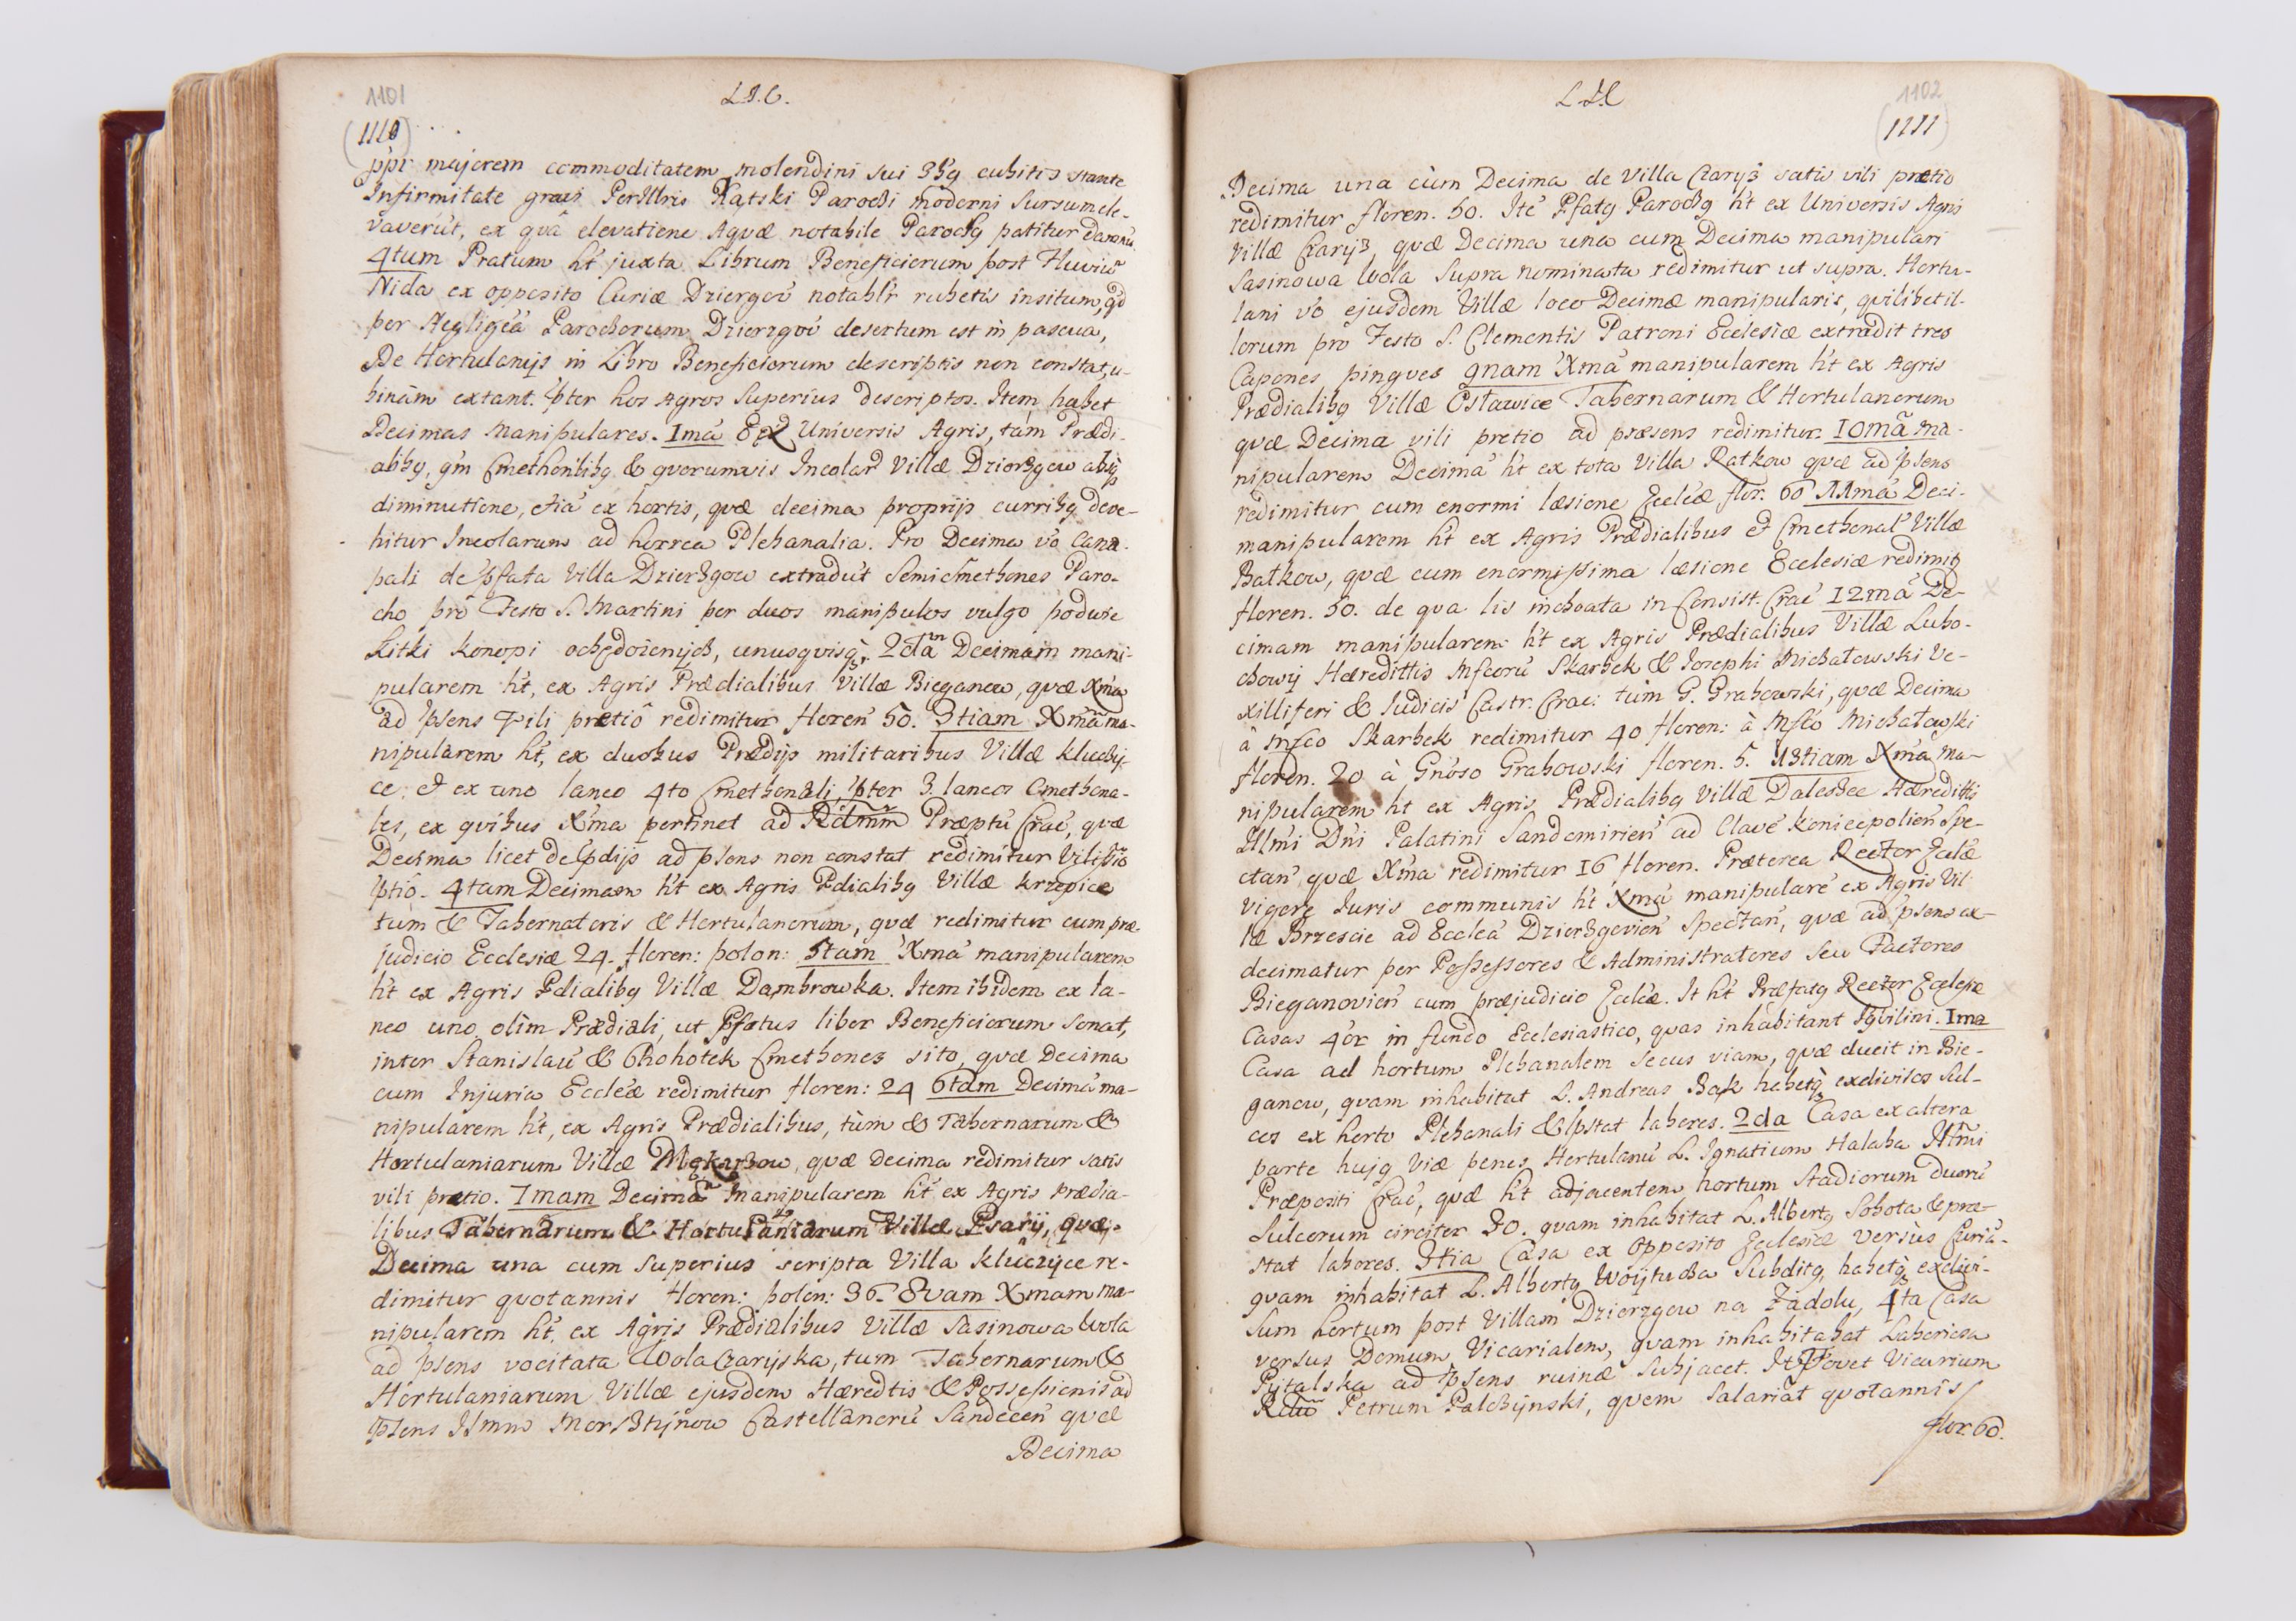 1101
L.J.C.
(1110)
ppr majorem commoditatem molendini sui 3bg cubitis stante
Infirmitate gravi PerIllris Kątski Parochi moderni Sursum ele-
vaverút, ex qvâ elevatione Aqvæ notabile Parochg patitur damnū
4tum Pratum ht juxta Librum Beneficiorum post Fluviū
Nida ex opposito Curiæ Dziergov notablr rubetis insitum, qd
per Negligéa Parochorum Dzierzgov desertum est in pascua,
De Hortulanijs in Libro Beneficiorum descriptis non constat, u-
binam extant. pter hos Agros Superius descriptos. Item habet
Decimas Manipulares. Ima Ex Universis Agris, tám Prædi-
alibg, qm Cmethonlibg & qvorumvis Incolar Villæ Dzierzgow absq
diminutione, etiā ex hortis, qvæ decima proprijs curribg deve-
hitur Incolarum ad horrea Plebanalia. Pro Decima vo Cana-
pali de pfata Villa Dzierzgow extradút Semicmethones Paro-
cho pro Festo S. Martini per duos manipulos vulgo podwie
Kitki konopi ochędożenych, unusqvisq. 2dam Decimam mani-
pularem ht, ex Agris Prædialibus Villæ Bieganow, qvæ Xma
ad psens vili prætio redimitur floren 50. 3tiam Xmā ma-
nipularem ht, ex duobus Prædijs militaribus Villæ kluczy-
ce: et ex uno laneo 4to Cmethonali, pter 3. laneos Cmethona-
les, ex qvibus Xma pertinet ad Rdmm Præptū Crac, qvæ
Decima licet de pdijs ad psens non constat redimitur vilissio
ptio. 4tam Decimam ht ex Agris Pdialibg Villæ krzepice
tum & Tabernatoris & Hortulanorum, qvæ redimitur cum præ-
judicio Ecclesiæ 24. floren: polon: 5tam Xmā manipularem
ht ex Agris Pdialibg Villæ Dambrowka. Item ibidem ex la-
neo uno olim Prædiali, ut Pfatus liber Beneficiorum sonat,
inter Stanislaū & Chohotek Cmethones sito, qvæ Decima
cum Injuria Eccleæ redimitur floren: 24 6tam Decimā ma-
nipularem ht, ex Agris Prædialibus, tùm & Tabernarum &
Hortulaniarum Villæ Mękarzow, qvæ Decima redimitur satis
vili prætio. 7mam Decimā Manipularem ht, ex Agris prædia-
libus Tabernarum & Hortulaniarum Villæ Psarij, qvæ
Decima una cum Superius scripta Villa kluczyce re-
dimitur qvotannis floren: polon: 36. 8vam Xmam ma-
nipularem ht, ex Agris Prædialibus Villæ Sasinowa Wola
ad psens vocitata Wola Czarijska, tum Tabernarum &
Hortulaniarum Villæ ejusdem Hæredtis & Possessionis ad
psens Ilmm Morsztijnow Castellanorū Sandecen qvæ
Decima
1102
L.J.C
(1111)
Decima una cùm Decima de Villa Czaryz satis vili prætio
redimitur floren. 50. Ite Pfatg Parochg ht ex Universis Agris
Villæ Czaryz, qvæ Decima una cum Decima manipulari
Sasinowa Wola Supra nominata redimitur ut supra. Hortu-
lani vo ejusdem Villæ loco Decimæ manipularis, qvilibet il-
lorum pro Festo S. Clementis Patroni Ecclesiæ extradit tres
Capones pingves 9nam Xmā manipularem ht ex Agris
Prædialibg Villæ Osławice Tabernarum & Hortulanorum
qvæ Decima vili pretio ad præsens redimitur. 10mā Ma-
nipularem Decimā ht ex tota Villa Ratkow qvæ ad psens
redimitur cum enormi læsione Eccleæ flor. 60 11mā Deci-
manipularem ht ex Agris Prædialibus et Cmethonal Villæ
Bałkow, qvæ cum enormissima læsione Ecclesiæ redimitz
floren. 50. de qva lis inchoata in Consist. Crac 12mā De-
cimam manipularem ht ex Agris Prædialibus Villæ Lubo-
chowij Hæredittis Mfcorū Skarbek & Josephi Michałowski Ve-
xilliferi & Judicis Castr. Crac: tùm G. Grabowski, qvæ Decima
à Mfco Skarbek redimitur 40 floren: à Mfco Michałowski
floren. 20 à Gnoso Grabowski floren. 5. 13tiam Xmā Ma-
nipularem ht ex Agris Prædialibg Villæ Daleszec Hæredittis
Illmi Dni Palatini Sandomirien ad Clavē koniecpolien Spe-
ctan qvæ Xma redimitur 16 floren. Præterea Rector Eccleæ
vigore Juris communis ht Xmā manipularē ex Agris Vil-
læ Brzescie ad Eccleā Dzierzgovien Spectan, qvæ ad psens ex-
decimatur per Possessores & Administratores Seu Factores
Bieganovien cum præjudicio Eccleæ. It ht Præfatg Rector Ecclesiæ
Casas 4or in fundo Ecclesiastico, qvas inhabitant Iqvilini. Ima
Casa ad hortum Plebanalem Secus viam, qvæ ducit in Bie-
ganow, qvam inhabitat L. Andreas Bąk habetq exdivisos Sul-
cos ex horto Plebanali & pstat labores. 2da Casa ex altera
parte hujg viæ penes Hortulanū L. Ignatium Halaba Illmi
Præpositi Crac, qvæ ht adjacentem hortum Stadiorum duorū
Sulcorum circiter 30. qvam inhabitat L. Albertg Sobota & præ-
stat labores. 3tia Casa ex Opposito Ecclesiæ versùs Curiā
qvam inhabitat L. Albertg Woijtucha Subditg, habetq exdivi-
sum hortum post Villam Dzierzgow na Zadolu, 4ta Casa
versus Domum Vicarialem, qvam inhabitabat Laboriosa
Pijtalska ad psens ruinæ Subjacet. It Fovet Vicarium
Rdum Petrum Palczijnski, qvem Salariat qvotannis
flor. 60.